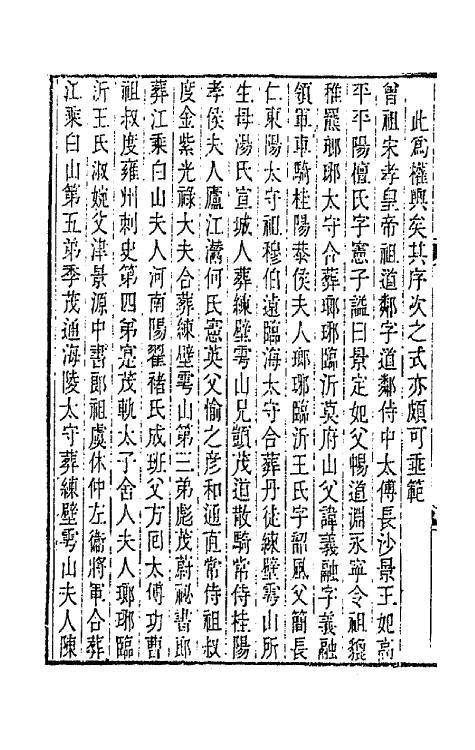 此爲權輿矣其序次之式亦頗可垂範
曾祖宋孝皇帝祖道鄰字道鄰侍中太傅長沙景王妃高
平平陽檀氏字憲子謚曰景定妃父暢道淵永寧令祖貔
稚羆瑯琊太守合葬瑯琊臨沂莫府山父諱義融字義融
領軍車騎桂陽恭侯夫人瑯琊臨沂王氏字韶風父簡長
仁東陽太守祖穆伯遠臨海太守合葬丹徒練壁雩山所
生母湯氏宣城人葬練壁雩山兄顗茂道散騎常侍桂陽
孝侯夫人廬江灊何氏憲英父愉之彦和通直常侍祖叔
度金紫光祿大夫合葬練壁雩山第三弟彪茂蔚祕書郎
葬江乘白山夫人河南陽翟褚氏成班父方回太傅功曹
祖叔度雍州刺史第四弟寔茂軌太子舍人夫人瑯琊臨
沂王氏淑婉父津景源中書郎祖虞休仲左衞將軍合葬
江乘白山第五弟季茂通海陵太守葬練壁雩山夫人陳